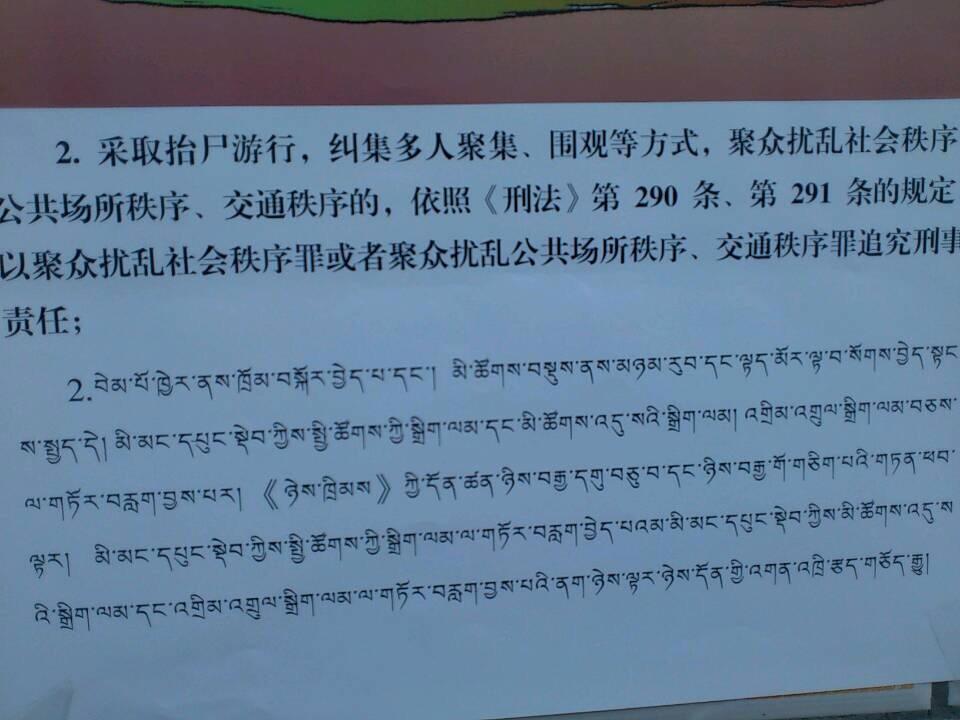 2. 采取抬尸游行，纠集多人聚集、围观等方式，聚众扰乱社会秩序
公共场所秩序、交通秩序的，依照《刑法》第 290 条、第 291 条的规定
以聚众扰乱社会秩序罪或者聚众扰乱公共场所秩序、交通秩序罪追究刑事
责任；
2.བེམ་པོ་ཁྱེར་ནས་ཁྲོམ་བསྐོར་བྱེད་པ་དང་། མི་ཚོགས་བསྡུས་ནས་མཉམ་རུབ་དང་ལྟད་མོར་ལྟ་བ་སོགས་བྱེད་སྟང
ས་སྤྱད་དེ། མི་མང་དཔུང་སྡེབ་ཀྱིས་སྤྱི་ཚོགས་ཀྱི་སྒྲིག་ལམ་དང་མི་ཚོགས་འདུ་སའི་སྒྲིག་ལམ། འགྲིམ་འགྲུལ་སྒྲིག་ལམ་བཅས་
ལ་གཏོར་བརླག་བྱས་པར། 《ཉེས་ཁྲིམས》 ཀྱི་དོན་ཚན་ཉིས་བརྒྱ་དགུ་བཅུ་བ་དང་ཉིས་བརྒྱ་གོ་གཅིག་པའི་གཏན་ཕབ་
ལྟར། མི་མང་དཔུང་སྡེབ་ཀྱིས་སྤྱི་ཚོགས་ཀྱི་སྒྲིག་ལམ་ལ་གཏོར་བརླག་བྱེད་པའམ་མི་མང་དཔུང་སྡེབ་ཀྱིས་མི་ཚོགས་འདུ་ས
འི་སྒྲིག་ལམ་དང་འགྲིམ་འགྲུལ་སྒྲིག་ལམ་ལ་གཏོར་བརླག་བྱས་པའི་ནག་ཉེས་ལྟར་ཉེས་དོན་གྱི་འགན་འཁྲི་རྩད་གཅོད་རྒྱུ།